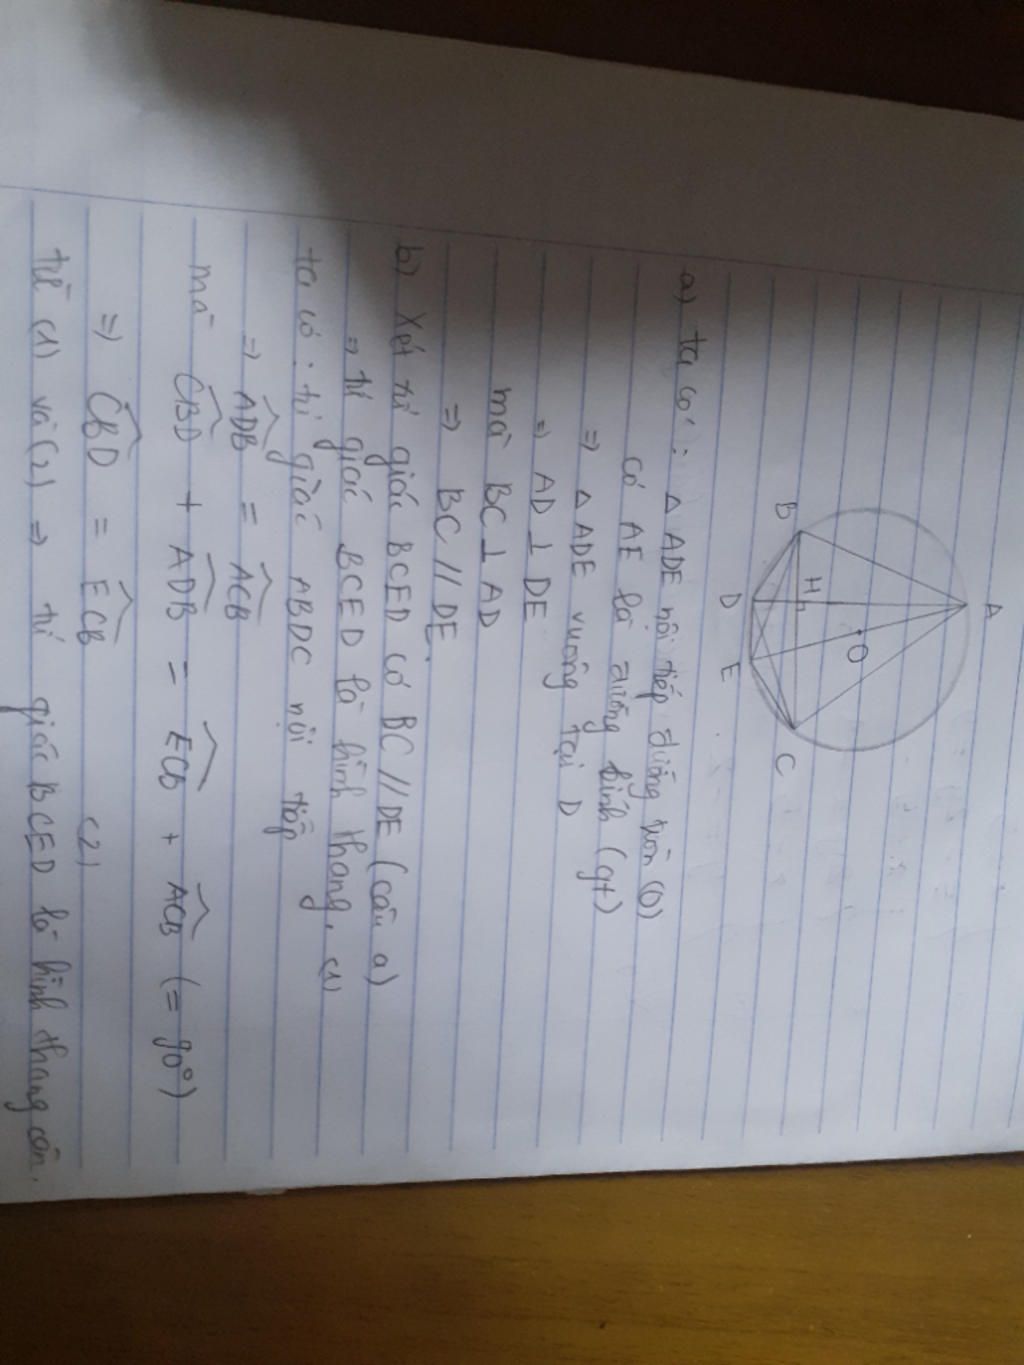 A
O
B
H
C
D
E
a) ta có: △ ADE nội tiếp đường tròn (O)
có AE là đường kính (gt)
⇒ △ ADE vuông tại D
⇒ AD ⊥ DE
mà BC ⊥ AD
⇒ BC // DE.
b) Xét tứ giác BCED có BC // DE (câu a)
⇒ tứ giác BCED là hình thang. (1)
ta có: tứ giác ABDC nội tiếp
⇒ \widehat{ADB} = \widehat{ACB}
mà \widehat{CBD} + \widehat{ADB} = \widehat{ECB} + \widehat{ACB} (= 90°)
⇒ \widehat{CBD} = \widehat{ECB} (2)
từ (1) và (2) ⇒ tứ giác BCED là hình thang cân.